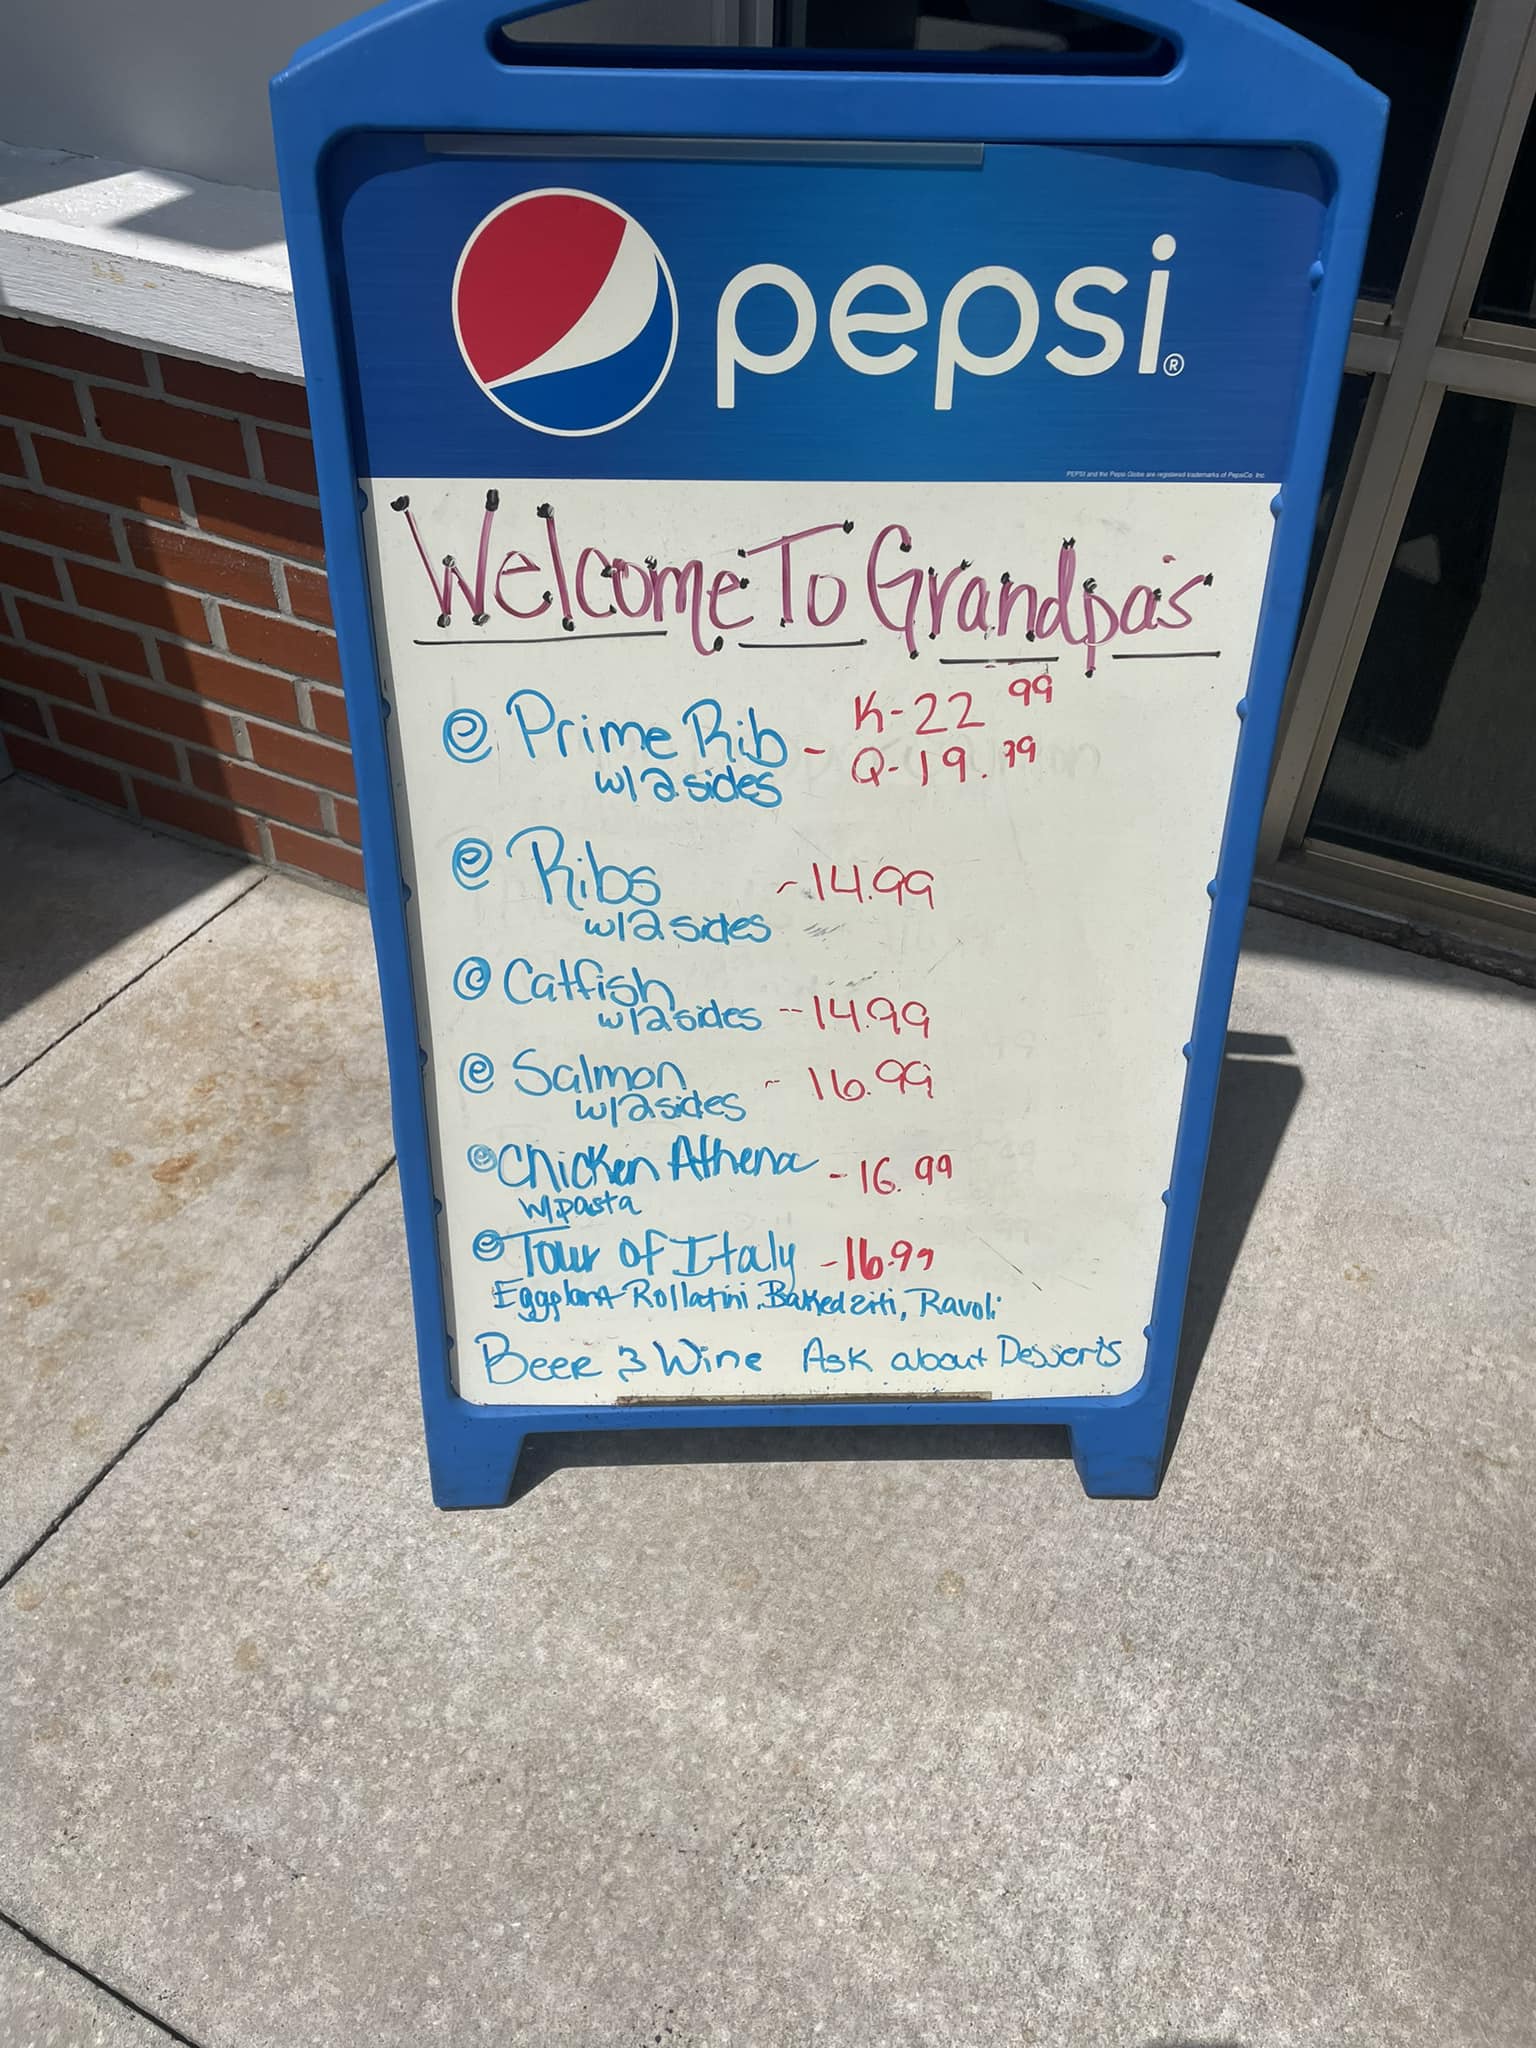 pepsi®
PEPSI and the Pepsi Globe are registered trademarks of PepsiCo, Inc.
Welcome To Grandpa's
Prime Rib - K-22 99
w/2 sides Q-19.99
Ribs -14.99
w/2 sides
Catfish
w/2 sides --14.99
Salmon - 16.99
w/2 sides
Chicken Athena -16.99
w/pasta
Tour of Italy -16.99
Eggplant Rollatini, Baked ziti, Ravoli
Beer & Wine Ask about Desserts